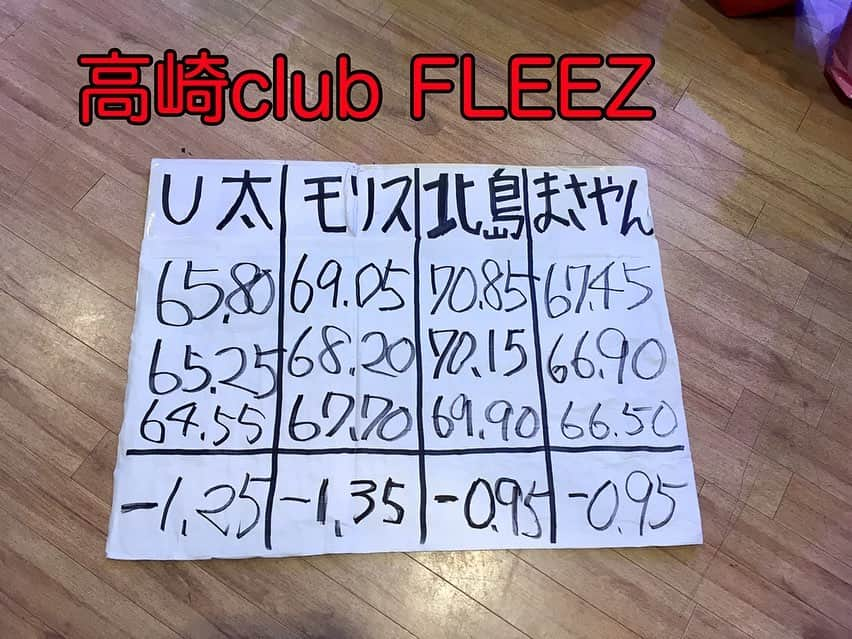 高崎club FLEEZ
U太 モリス 北島 まさやん
65.80 69.05 70.85 67.45
65.25 68.20 70.15 66.90
64.55 67.70 69.90 66.50
-1.25 -1.35 -0.95 -0.95